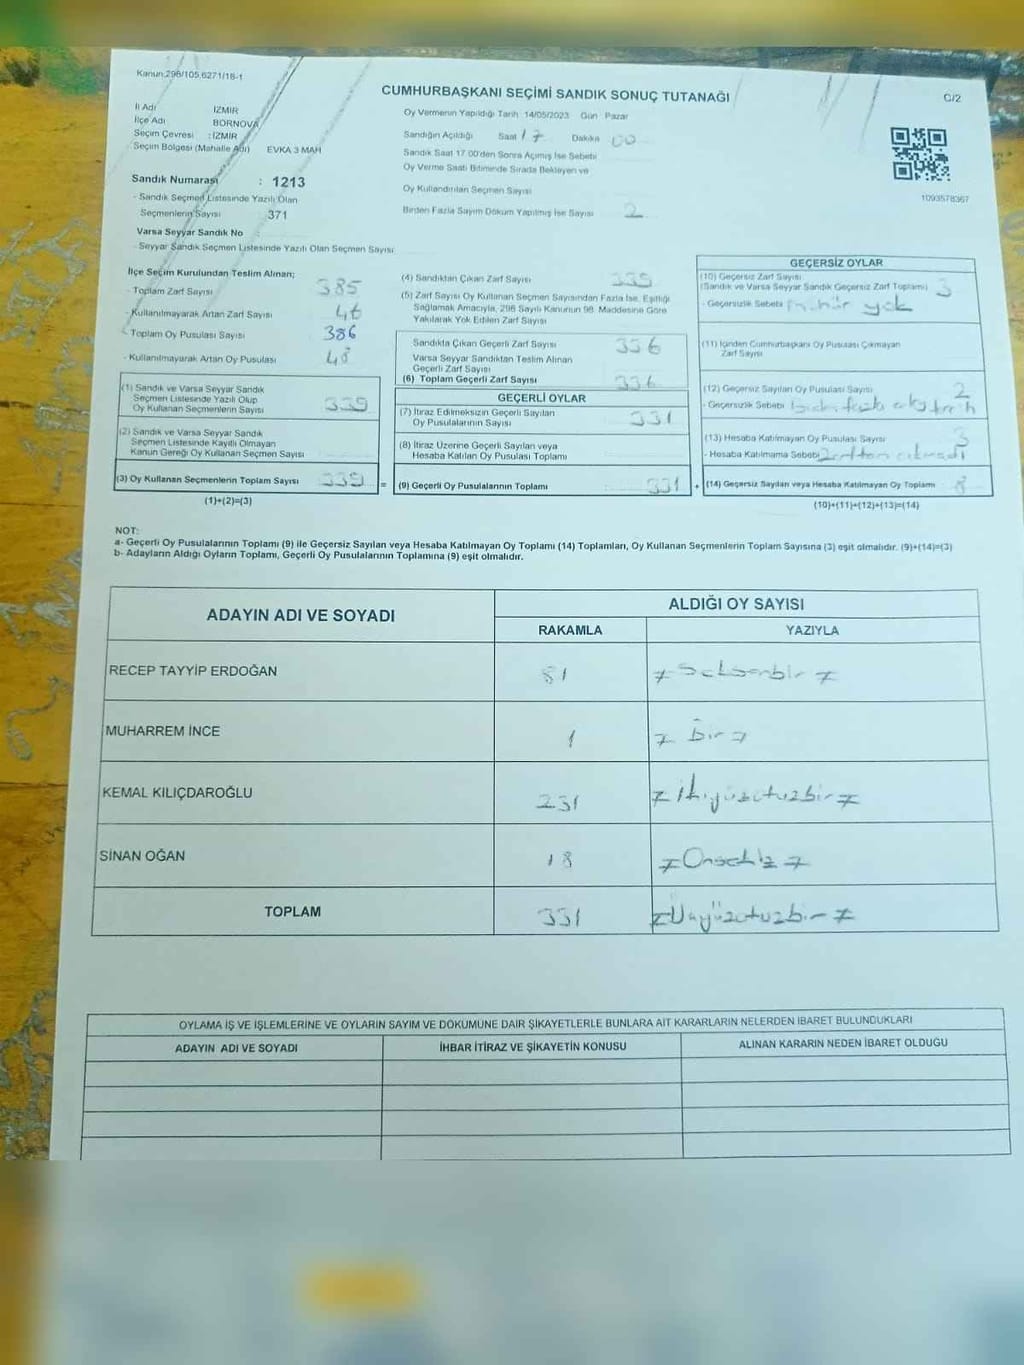 Kanun:298/105,6271/18-1
CUMHURBAŞKANI SEÇİMİ SANDIK SONUÇ TUTANAĞI
C/2
İl Adı İZMİR
İlçe Adı BORNOVA
Seçim Çevresi : İZMİR
Seçim Bölgesi (Mahalle Adı) EVKA 3 MAH
Oy Vermenin Yapıldığı Tarih 14/05/2023 Gün Pazar
Sandığın Açıldığı Saat 17 Dakika 00
Sandık Saat 17.00'den Sonra Açımış İse Sebebi
Oy Verme Saati Bitiminde Sırada Bekleyen ve
Oy Kullandırılan Seçmen Sayısı
Birden Fazla Sayım Döküm Yapılmış İse Sayısı 2
1093578367
Sandık Numarası : 1213
- Sandık Seçmen Listesinde Yazılı Olan
Seçmenlerin Sayısı 371
Varsa Seyyar Sandık No :
- Seyyar Sandık Seçmen Listesinde Yazılı Olan Seçmen Sayısı
İlçe Seçim Kurulundan Teslim Alınan;
- Toplam Zarf Sayısı 385
- Kullanılmayarak Artan Zarf Sayısı 46
- Toplam Oy Pusulası Sayısı 386
- Kullanılmayarak Artan Oy Pusulası 48
(1) Sandık ve Varsa Seyyar Sandık
Seçmen Listesinde Yazılı Olup
Oy Kullanan Seçmenlerin Sayısı 339
(2) Sandık ve Varsa Seyyar Sandık
Seçmen Listesinde Kayıtlı Olmayan
Kanun Gereği Oy Kullanan Seçmen Sayısı
(3) Oy Kullanan Seçmenlerin Toplam Sayısı 339 =
(1)+(2)=(3)
(4) Sandıktan Çıkan Zarf Sayısı 339
(5) Zarf Sayısı Oy Kullanan Seçmen Sayısından Fazla İse, Eşitliği
Sağlamak Amacıyla, 298 Sayılı Kanunun 98. Maddesine Göre
Yakılarak Yok Edilen Zarf Sayısı
Sandıkta Çıkan Geçerli Zarf Sayısı 336
Varsa Seyyar Sandıktan Teslim Alınan
Geçerli Zarf Sayısı
(6) Toplam Geçerli Zarf Sayısı 336
GEÇERLİ OYLAR
(7) İtiraz Edilmeksizin Geçerli Sayılan
Oy Pusulalarının Sayısı 331
(8) İtiraz Üzerine Geçerli Sayılan veya
Hesaba Katılan Oy Pusulası Toplamı
(9) Geçerli Oy Pusulalarının Toplamı 331 +
GEÇERSİZ OYLAR
(10) Geçersiz Zarf Sayısı
(Sandık ve Varsa Seyyar Sandık Geçersiz Zarf Toplamı) 3
- Geçersizlik Sebebi mühür yok
(11) İçinden Cumhurbaşkanı Oy Pusulası Çıkmayan
Zarf Sayısı
(12) Geçersiz Sayılan Oy Pusulası Sayısı 2
- Geçersizlik Sebebi birden fazla
(13) Hesaba Katılmayan Oy Pusulası Sayısı 3
- Hesaba Katılmama Sebebi zarftan çıkmadı
(14) Geçersiz Sayılan veya Hesaba Katılmayan Oy Toplamı 8
(10)+(11)+(12)+(13)=(14)
NOT:
a- Geçerli Oy Pusulalarının Toplamı (9) ile Geçersiz Sayılan veya Hesaba Katılmayan Oy Toplamı (14) Toplamları, Oy Kullanan Seçmenlerin Toplam Sayısına (3) eşit olmalıdır. (9)+(14)=(3)
b- Adayların Aldığı Oyların Toplamı, Geçerli Oy Pusulalarının Toplamına (9) eşit olmalıdır.
ADAYIN ADI VE SOYADI ALDIĞI OY SAYISI
RAKAMLA YAZIYLA
RECEP TAYYİP ERDOĞAN 81 Seksenbir
MUHARREM İNCE 1 Bir
KEMAL KILIÇDAROĞLU 231 ikiyüzotuzbir
SİNAN OĞAN 18 Onsekiz
TOPLAM 331 Üçyüzotuzbir
OYLAMA İŞ VE İŞLEMLERİNE VE OYLARIN SAYIM VE DÖKÜMÜNE DAİR ŞİKAYETLERLE BUNLARA AİT KARARLARIN NELERDEN İBARET BULUNDUKLARI
ADAYIN ADI VE SOYADI İHBAR İTİRAZ VE ŞİKAYETİN KONUSU ALINAN KARARIN NEDEN İBARET OLDUĞU